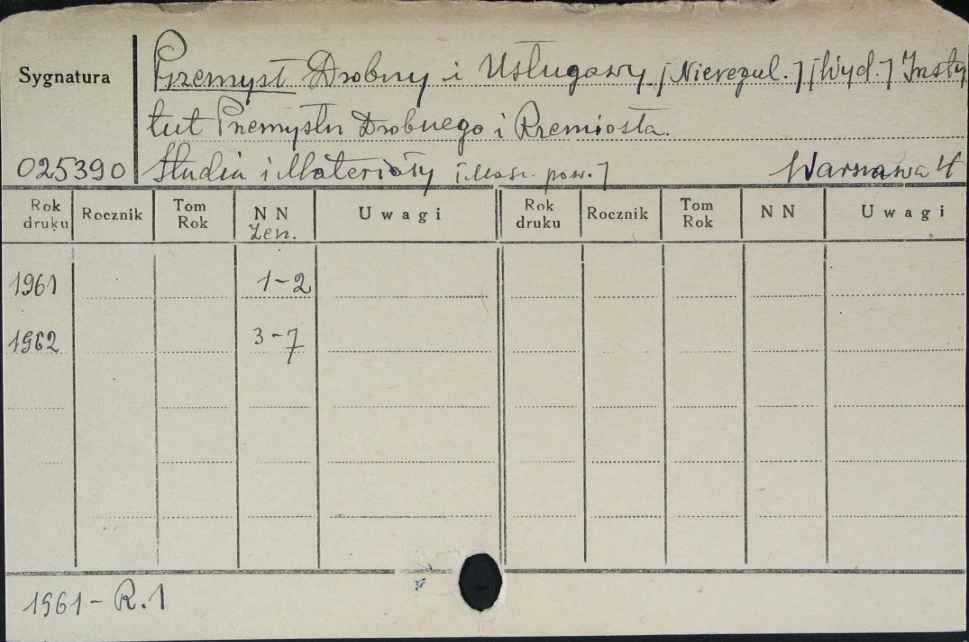 Przemysł Drobny i Usługowy [Nieregul.] [Wyd.] Insty
Sygnatura
tut Przemysłu Drobnego i Rzemiosła.
025390 Studia i Materiały [Masz. pow.] Warszawa 4
Rok druku Rocznik Tom Rok NN Zen. Uwagi Rok druku Rocznik Tom Rok NN Uwagi
1961 1-2
1962 3-7
1961- R.1